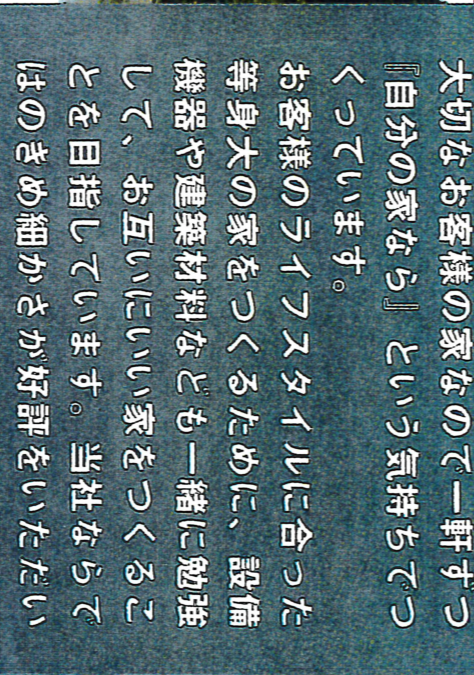 大切なお客様の家なので一軒ずつ
『自分の家なら』という気持ちでつ
くっています。
お客様のライフスタイルに合った
等身大の家をつくるために、設備
機器や建築材料なども一緒に勉強
して、お互いにいい家をつくるこ
とを目指しています。当社ならで
はのきめ細かさが好評をいただい